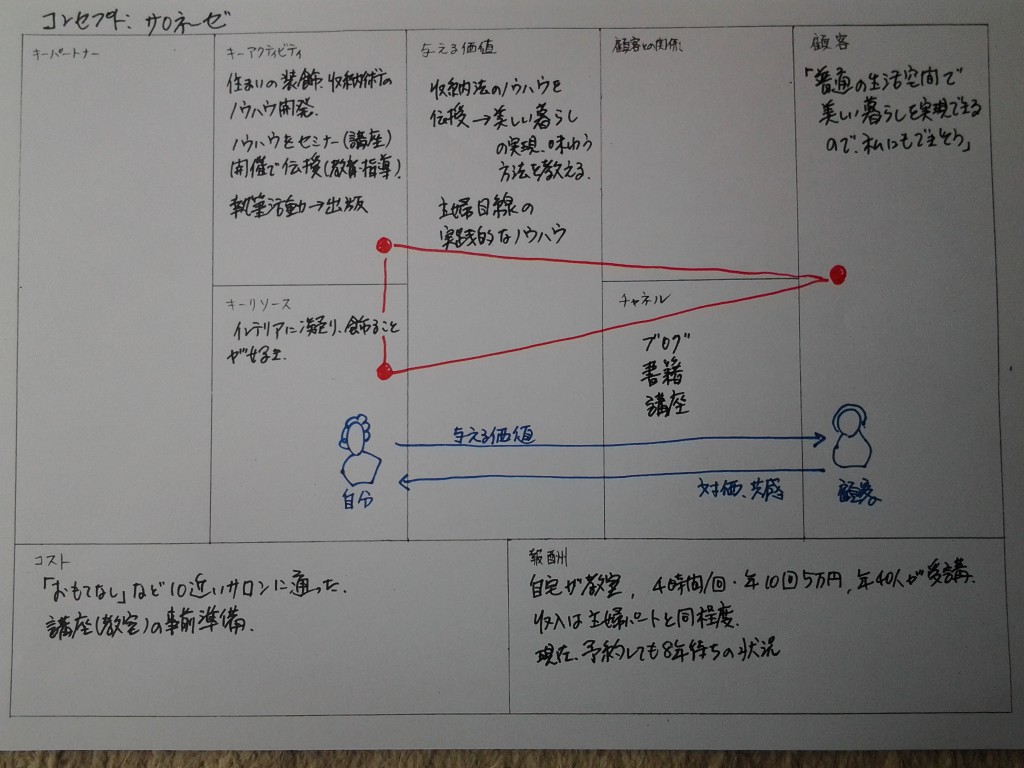 コンセプト: サロネーゼ
キーパートナー
キーアクティビティ
住まいの装飾、収納術の
ノウハウ開発.
ノウハウをセミナー(講座)
開催で伝授(教育・指導).
執筆活動→出版
キーリソース
インテリアに凝り、飾ること
が好き.
与える価値
収納法のノウハウを
伝授→美しい暮らし
の実現、味わう
方法を教える.
主婦目線の
実践的なノウハウ
顧客との関係
チャネル
ブログ
書籍
講座
顧客
「普通の生活空間で
美しい暮らしを実現できる
ので、私にもできそう」
与える価値
対価、共感
自分
顧客
コスト
「おもてなし」など10近いサロンに通った.
講座(教室)の事前準備.
報酬
自宅が教室, 4時間/回・年10回5万円, 年40人が受講.
収入は主婦パートと同程度.
現在、予約しても8年待ちの状況